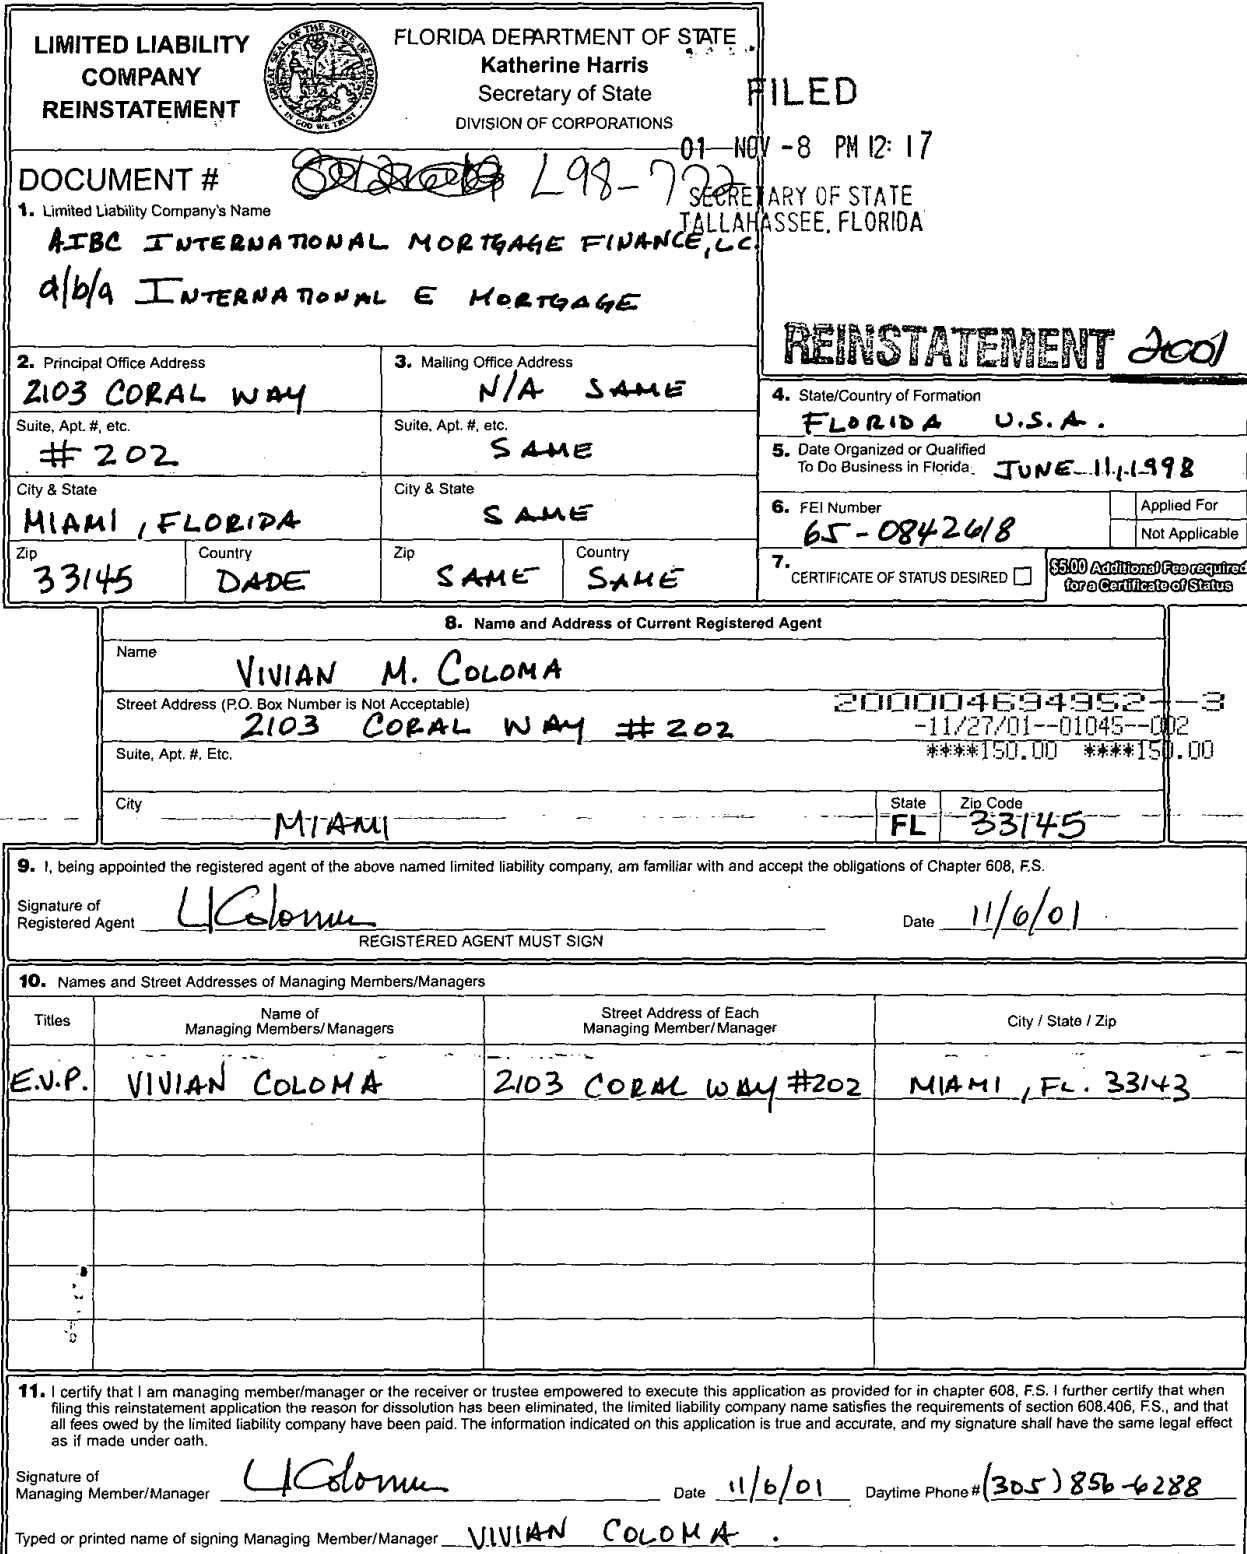 LIMITED LIABILITY
COMPANY
REINSTATEMENT
FLORIDA DEPARTMENT OF STATE
Katherine Harris
Secretary of State
DIVISION OF CORPORATIONS
FILED
01 NOV -8 PM 12: 17
SECRETARY OF STATE
TALLAHASSEE, FLORIDA
DOCUMENT # L98-722
1. Limited Liability Company's Name
AIBC INTERNATIONAL MORTGAGE FINANCE, LC.
d/b/a INTERNATIONAL E MORTGAGE
REINSTATEMENT 2001
2. Principal Office Address
2103 CORAL WAY
Suite, Apt. #, etc.
# 202
City & State
MIAMI, FLORIDA
Zip
33145
Country
DADE
3. Mailing Office Address
N/A SAME
Suite, Apt. #, etc.
SAME
City & State
SAME
Zip
SAME
Country
SAME
4. State/Country of Formation
FLORIDA U.S.A.
5. Date Organized or Qualified
To Do Business in Florida JUNE 11, 1998
6. FEI Number
65-0842618
Applied For
Not Applicable
7. CERTIFICATE OF STATUS DESIRED
$5.00 Additional Fee required
for a Certificate of Status
8. Name and Address of Current Registered Agent
Name
VIVIAN M. COLOMA
Street Address (P.O. Box Number is Not Acceptable)
2103 CORAL WAY # 202
Suite, Apt. #, Etc.
200004694952--3
-11/27/01--01045--002
****150.00 ****150.00
City
MIAMI
State
FL
Zip Code
33145
9. I, being appointed the registered agent of the above named limited liability company, am familiar with and accept the obligations of Chapter 608, F.S.
Signature of
Registered Agent VColoma Date 11/6/01
REGISTERED AGENT MUST SIGN
10. Names and Street Addresses of Managing Members/Managers
Titles
Name of
Managing Members/Managers
Street Address of Each
Managing Member/Manager
City / State / Zip
E.V.P. VIVIAN COLOMA 2103 CORAL WAY #202 MIAMI, FL. 33143
11. I certify that I am managing member/manager or the receiver or trustee empowered to execute this application as provided for in chapter 608, F.S. I further certify that when
filing this reinstatement application the reason for dissolution has been eliminated, the limited liability company name satisfies the requirements of section 608.406, F.S., and that
all fees owed by the limited liability company have been paid. The information indicated on this application is true and accurate, and my signature shall have the same legal effect
as if made under oath.
Signature of
Managing Member/Manager VColoma Date 11/6/01 Daytime Phone # (305) 856-6288
Typed or printed name of signing Managing Member/Manager VIVIAN COLOMA.